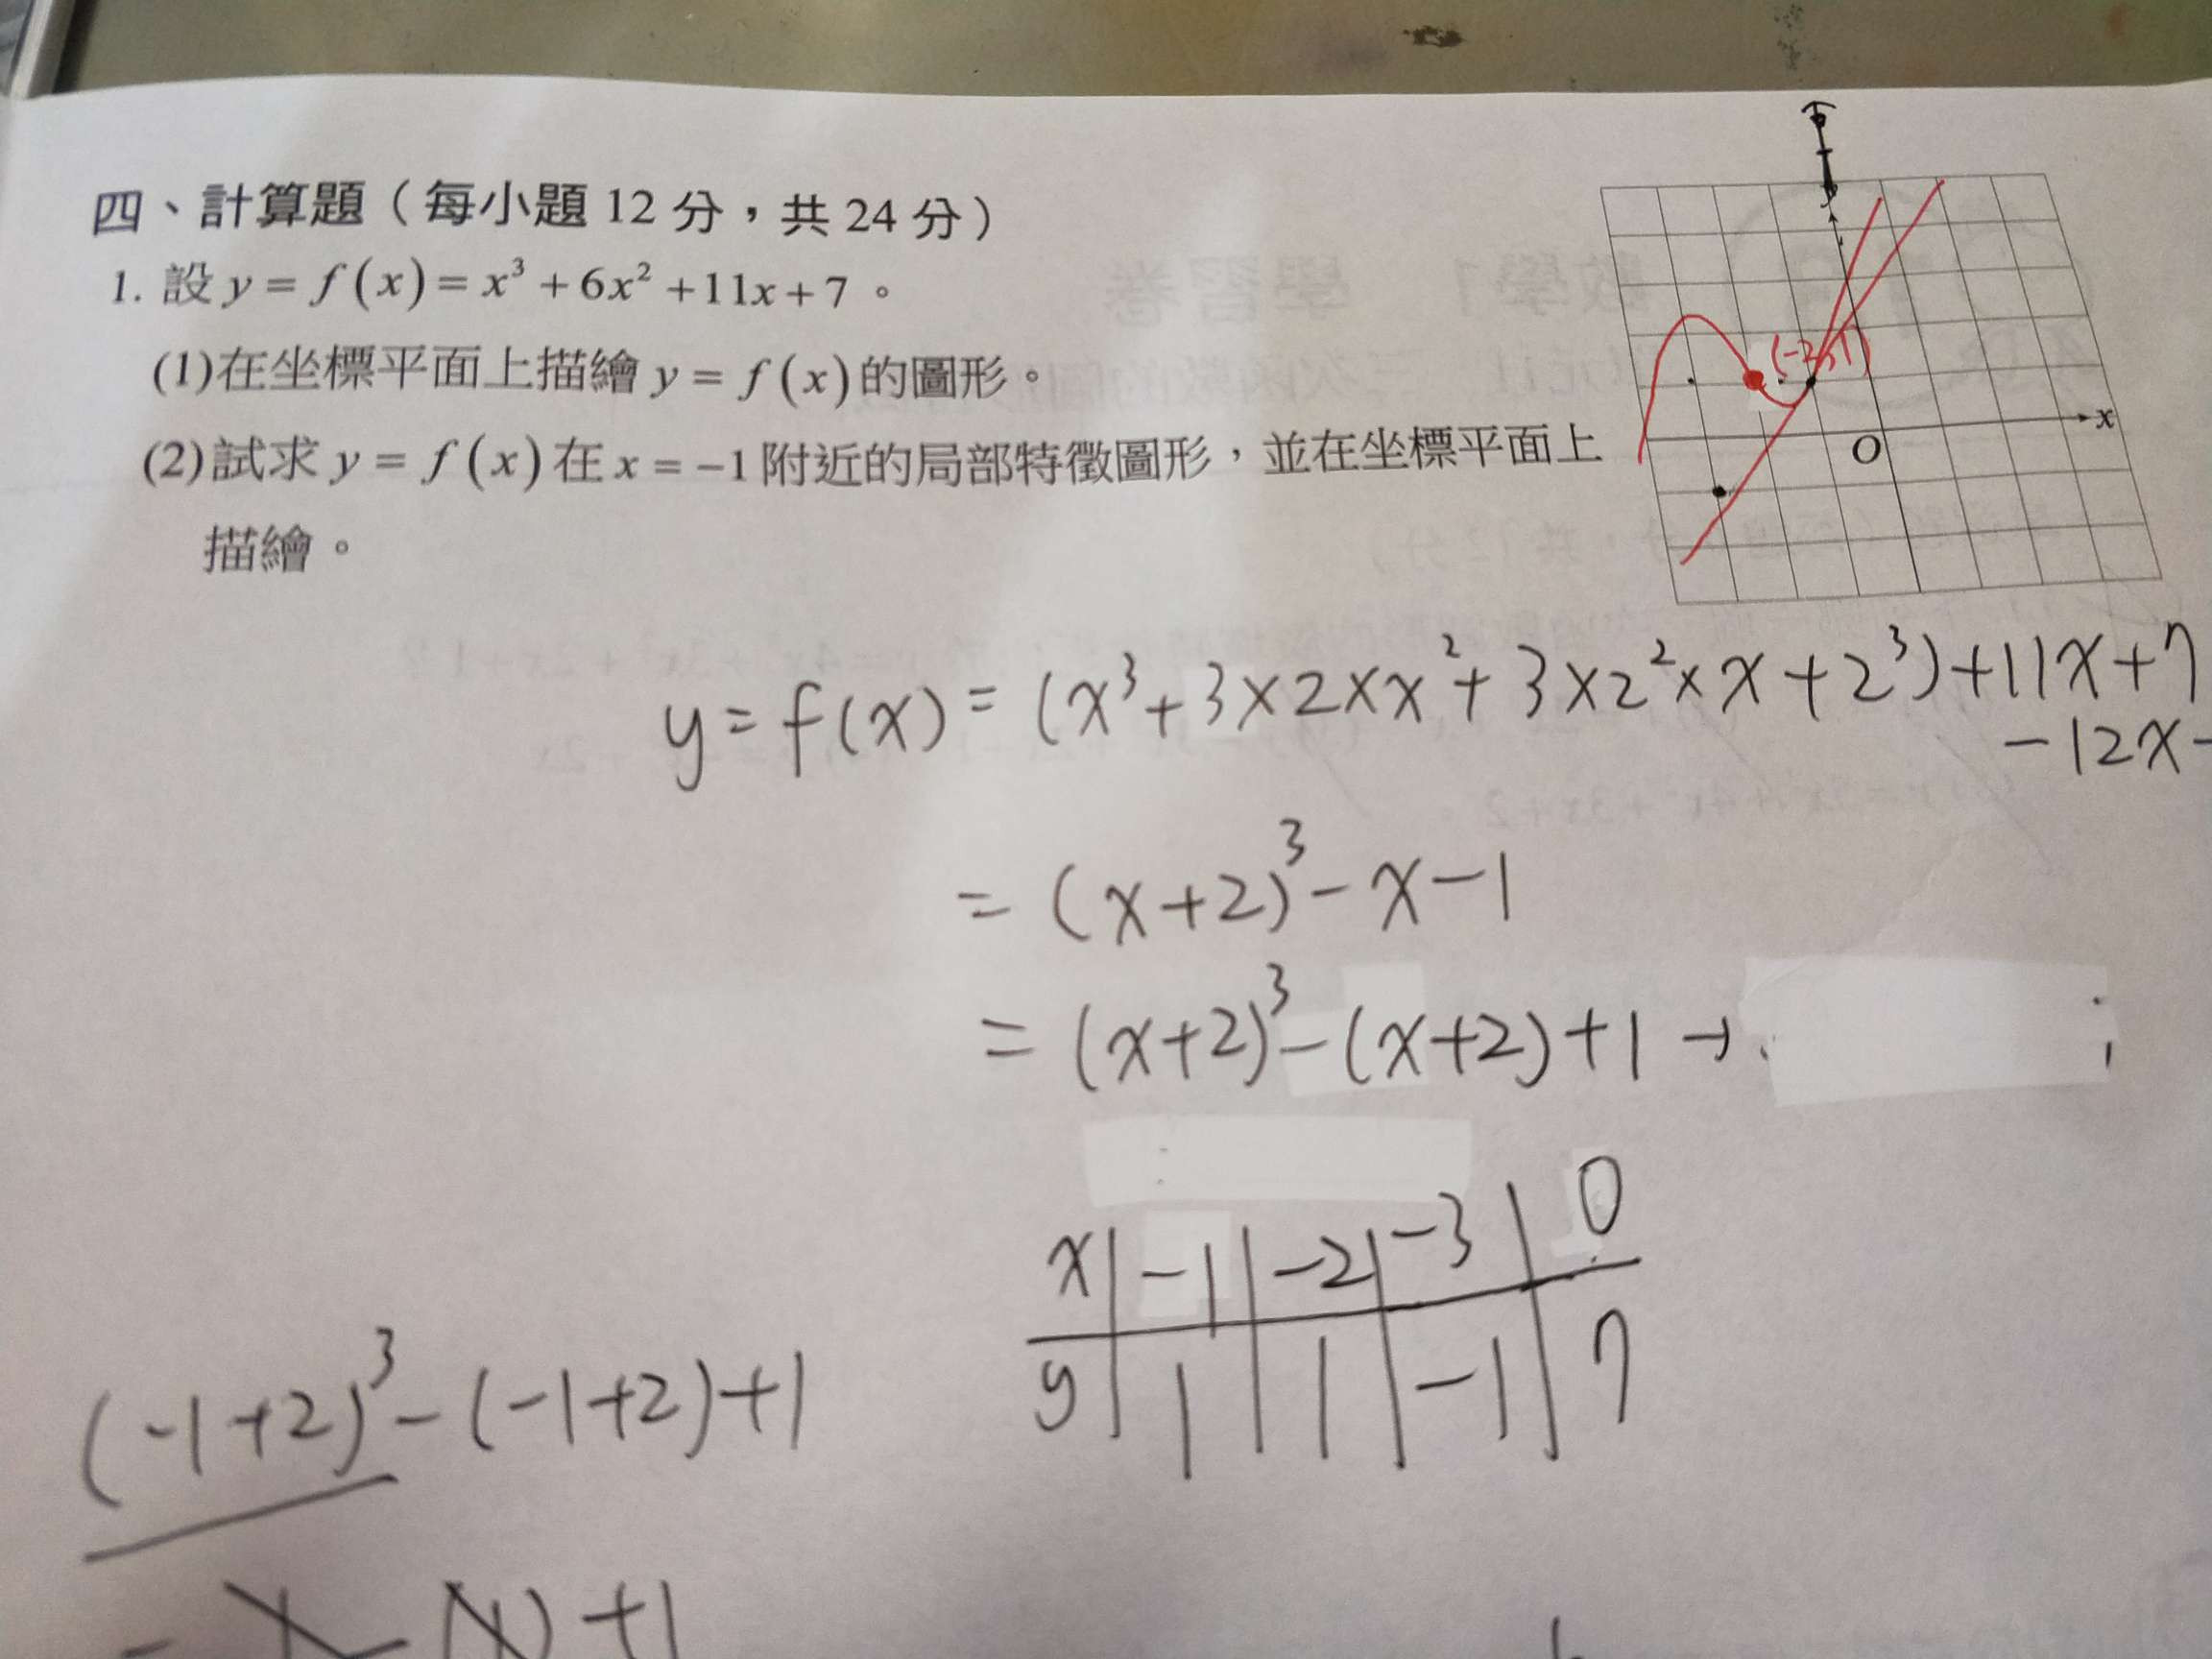 四、計算題（每小題 12 分，共 24 分）
1. 設 y = f(x) = x³ + 6x² + 11x + 7 。
(1)在坐標平面上描繪 y = f(x) 的圖形。
(2)試求 y = f(x) 在 x = −1 附近的局部特徵圖形，並在坐標平面上
描繪。
y
(-2,1)
x
O
y = f(x) = (x³ + 3×2×x² + 3×2²×x + 2³) + 11x + 7
-12x-
= (x+2)³ - x - 1
= (x+2)³ - (x+2) + 1 →
x | -1 | -2 | -3 | 0
y | 1 | 1 | -1 | 7
(-1+2)³ - (-1+2) + 1
+1